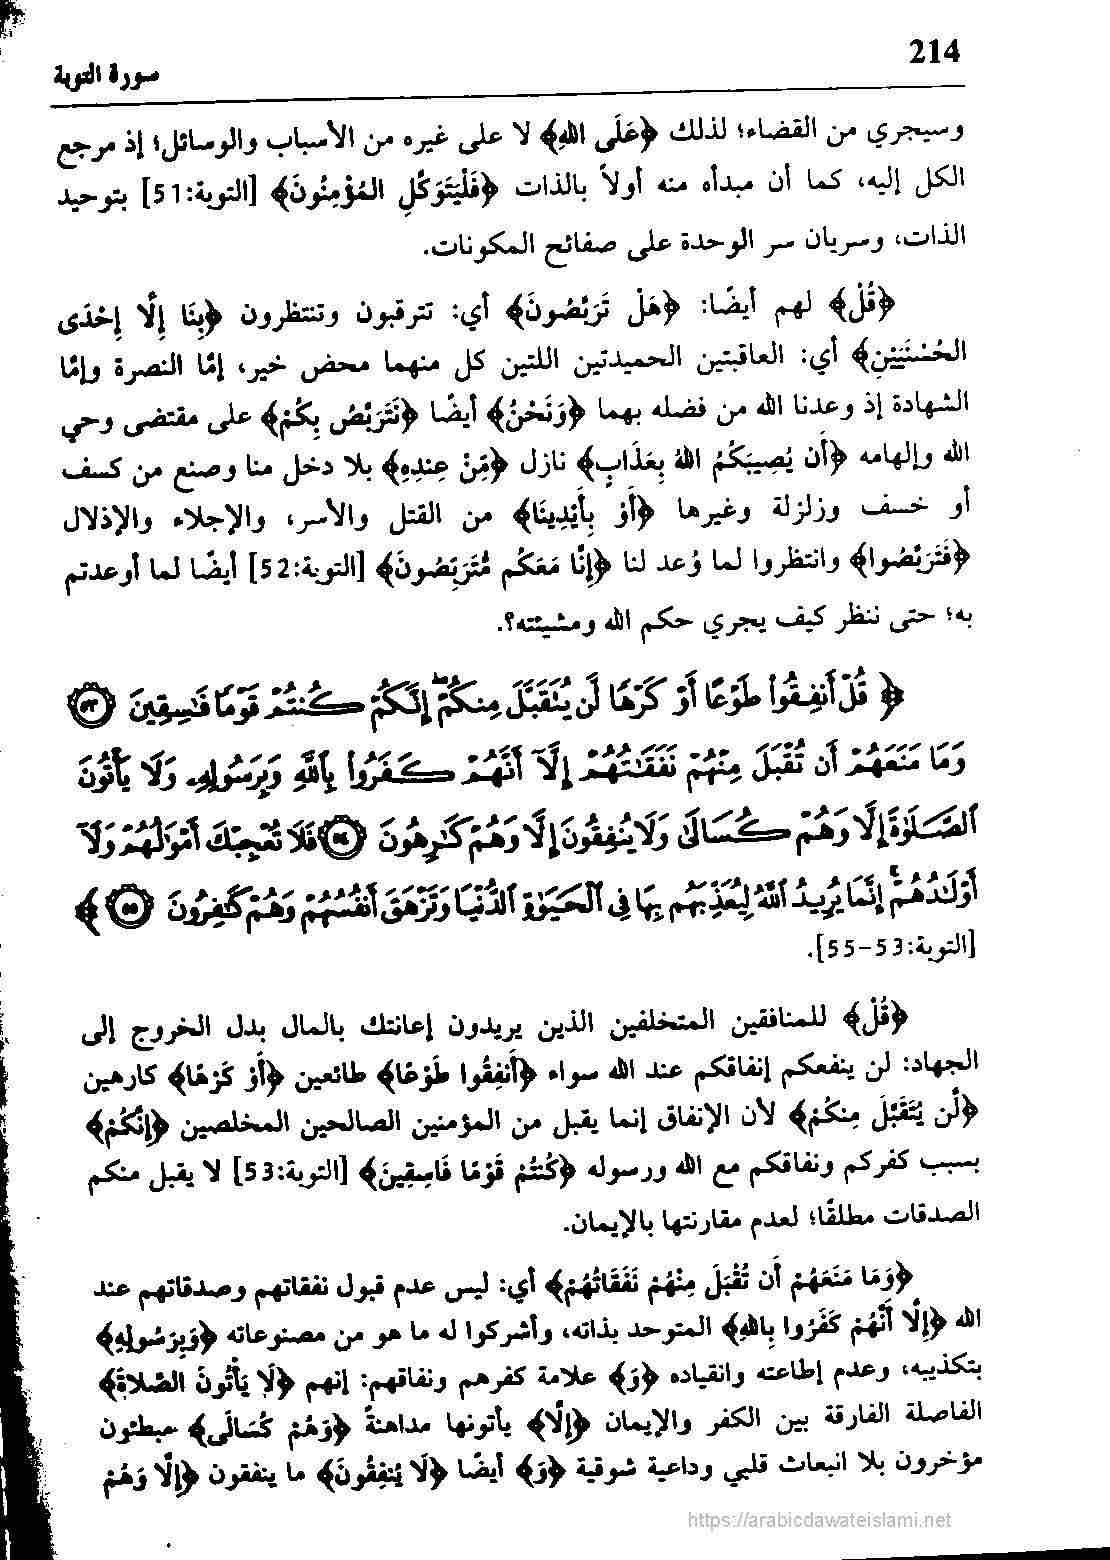 214
سورة التوبة
وسيجري من القضاء؛ لذلك ﴿عَلَى اللهِ﴾ لا على غيره من الأسباب والوسائل؛ إذ مرجع
الكل إليه، كما أن مبدأه منه أولاً بالذات ﴿فَلْيَتَوَكَّلِ المُؤْمِنُونَ﴾ [التوبة:51] بتوحيد
الذات، وسريان سر الوحدة على صفائح المكونات.
﴿قُلْ﴾ لهم أيضًا: ﴿هَلْ تَرَبَّصُونَ﴾ أي: تترقبون وتنتظرون ﴿بِنَا إِلَّا إِحْدَى
الحُسْنَيَيْنِ﴾ أي: العاقبتين الحميدتين اللتين كل منهما محض خير، إمَّا النصرة وإمَّا
الشهادة إذ وعدنا الله من فضله بهما ﴿وَنَحْنُ﴾ أيضًا ﴿نَتَرَبَّصُ بِكُمْ﴾ على مقتضى وحي
الله وإلهامه ﴿أَن يُصِيبَكُمُ اللهُ بِعَذَابٍ﴾ نازل ﴿مِّنْ عِندِهِ﴾ بلا دخل منا وصنع من كسف
أو خسف وزلزلة وغيرها ﴿أَوْ بِأَيْدِينَا﴾ من القتل والأسر، والإجلاء والإذلال
﴿فَتَرَبَّصُوا﴾ وانتظروا لما وُعد لنا ﴿إِنَّا مَعَكُم مُّتَرَبِّصُونَ﴾ [التوبة:52] أيضًا لما أوعدتم
به؛ حتى ننظر كيف يجري حكم الله ومشيئته؟.
﴿ قُلْ أَنفِقُواْ طَوْعًا أَوْ كَرْهًا لَّن يُتَقَبَّلَ مِنكُمْ ۖ إِنَّكُمْ كُنتُمْ قَوْمًا فَاسِقِينَ ۝٥٣
وَمَا مَنَعَهُمْ أَن تُقْبَلَ مِنْهُمْ نَفَقَاتُهُمْ إِلَّآ أَنَّهُمْ كَفَرُواْ بِاللَّهِ وَبِرَسُولِهِ وَلَا يَأْتُونَ
ٱلصَّلَوٰةَ إِلَّا وَهُمْ كُسَالَىٰ وَلَا يُنفِقُونَ إِلَّا وَهُمْ كَارِهُونَ ۝٥٤ فَلَا تُعْجِبْكَ أَمْوَالُهُمْ وَلَآ
أَوْلَادُهُمْ ۚ إِنَّمَا يُرِيدُ ٱللَّهُ لِيُعَذِّبَهُم بِهَا فِى ٱلْحَيَوٰةِ ٱلدُّنْيَا وَتَزْهَقَ أَنفُسُهُمْ وَهُمْ كَافِرُونَ ۝٥٥ ﴾
[التوبة:53-55].
﴿قُلْ﴾ للمنافقين المتخلفين الذين يريدون إعانتك بالمال بدل الخروج إلى
الجهاد: لن ينفعكم إنفاقكم عند الله سواء ﴿أَنفِقُوا طَوْعًا﴾ طائعين ﴿أَوْ كَرْهًا﴾ كارهين
﴿لَّن يُتَقَبَّلَ مِنكُمْ﴾ لأن الإنفاق إنما يقبل من المؤمنين الصالحين المخلصين ﴿إِنَّكُمْ﴾
بسبب كفركم ونفاقكم مع الله ورسوله ﴿كُنتُمْ قَوْمًا فَاسِقِينَ﴾ [التوبة:53] لا يقبل منكم
الصدقات مطلقًا؛ لعدم مقارنتها بالإيمان.
﴿وَمَا مَنَعَهُمْ أَن تُقْبَلَ مِنْهُمْ نَفَقَاتُهُمْ﴾ أي: ليس عدم قبول نفقاتهم وصدقاتهم عند
الله ﴿إِلَّا أَنَّهُمْ كَفَرُوا بِاللهِ﴾ المتوحد بذاته، وأشركوا له ما هو من مصنوعاته ﴿وَبِرَسُولِهِ﴾
بتكذيبه، وعدم إطاعته وانقياده ﴿وَ﴾ علامة كفرهم ونفاقهم: إنهم ﴿لَا يَأْتُونَ الصَّلاةَ﴾
الفاصلة الفارقة بين الكفر والإيمان ﴿إِلَّا﴾ يأتونها مداهنةً ﴿وَهُمْ كُسَالَى﴾ مبطئون
مؤخرون بلا انبعاث قلبي وداعية شوقية ﴿وَ﴾ أيضًا ﴿لَا يُنفِقُونَ﴾ ما ينفقون ﴿إِلَّا وَهُمْ
https://arabicdawateislami.net